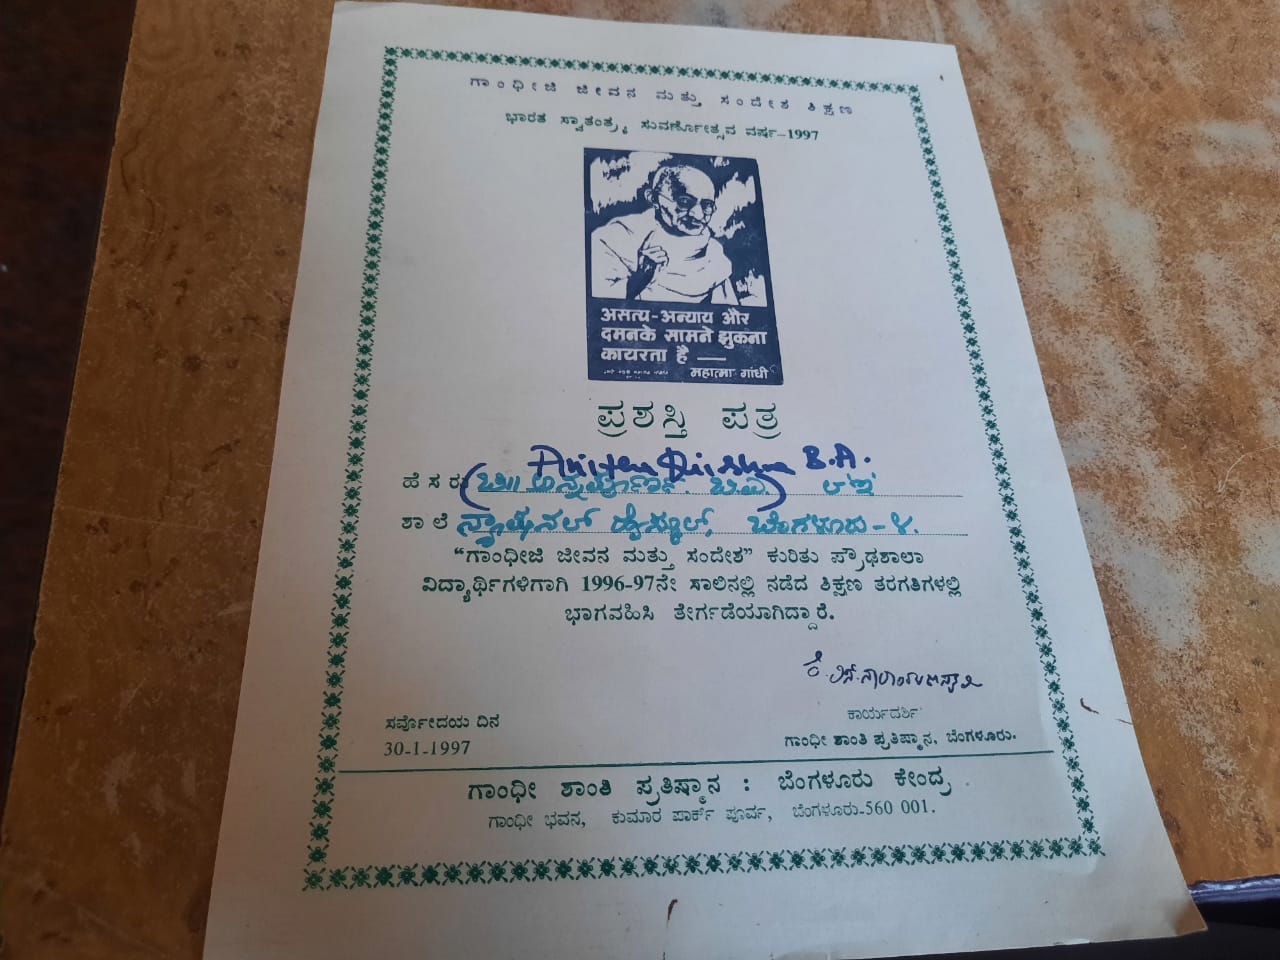 ಗಾಂಧೀಜಿ ಜೀವನ ಮತ್ತು ಸಂದೇಶ ಶಿಕ್ಷಣ
ಭಾರತ ಸ್ವಾತಂತ್ರ್ಯ ಸುವರ್ಣೋತ್ಸವ ವರ್ಷ-1997
असत्य-अन्याय और
दमनके सामने झुकना
कायरता है —
महात्मा गांधी
ಪ್ರಶಸ್ತಿ ಪತ್ರ
B.A.
ಹೆಸರು (ಅನ್ನಪೂರ್ಣ. ಬಿ.ಎ)
ಶಾಲೆ ನ್ಯಾಷನಲ್ ಹೈಸ್ಕೂಲ್, ಬೆಂಗಳೂರು-೪.
“ಗಾಂಧೀಜಿ ಜೀವನ ಮತ್ತು ಸಂದೇಶ” ಕುರಿತು ಪ್ರೌಢಶಾಲಾ
ವಿದ್ಯಾರ್ಥಿಗಳಿಗಾಗಿ 1996-97ನೇ ಸಾಲಿನಲ್ಲಿ ನಡೆದ ಶಿಕ್ಷಣ ತರಗತಿಗಳಲ್ಲಿ
ಭಾಗವಹಿಸಿ ತೇರ್ಗಡೆಯಾಗಿದ್ದಾರೆ.
ಸರ್ವೋದಯ ದಿನ
30-1-1997
ಕಾರ್ಯದರ್ಶಿ
ಗಾಂಧೀ ಶಾಂತಿ ಪ್ರತಿಷ್ಠಾನ, ಬೆಂಗಳೂರು.
ಗಾಂಧೀ ಶಾಂತಿ ಪ್ರತಿಷ್ಠಾನ : ಬೆಂಗಳೂರು ಕೇಂದ್ರ
ಗಾಂಧೀ ಭವನ, ಕುಮಾರ ಪಾರ್ಕ್ ಪೂರ್ವ, ಬೆಂಗಳೂರು-560 001.